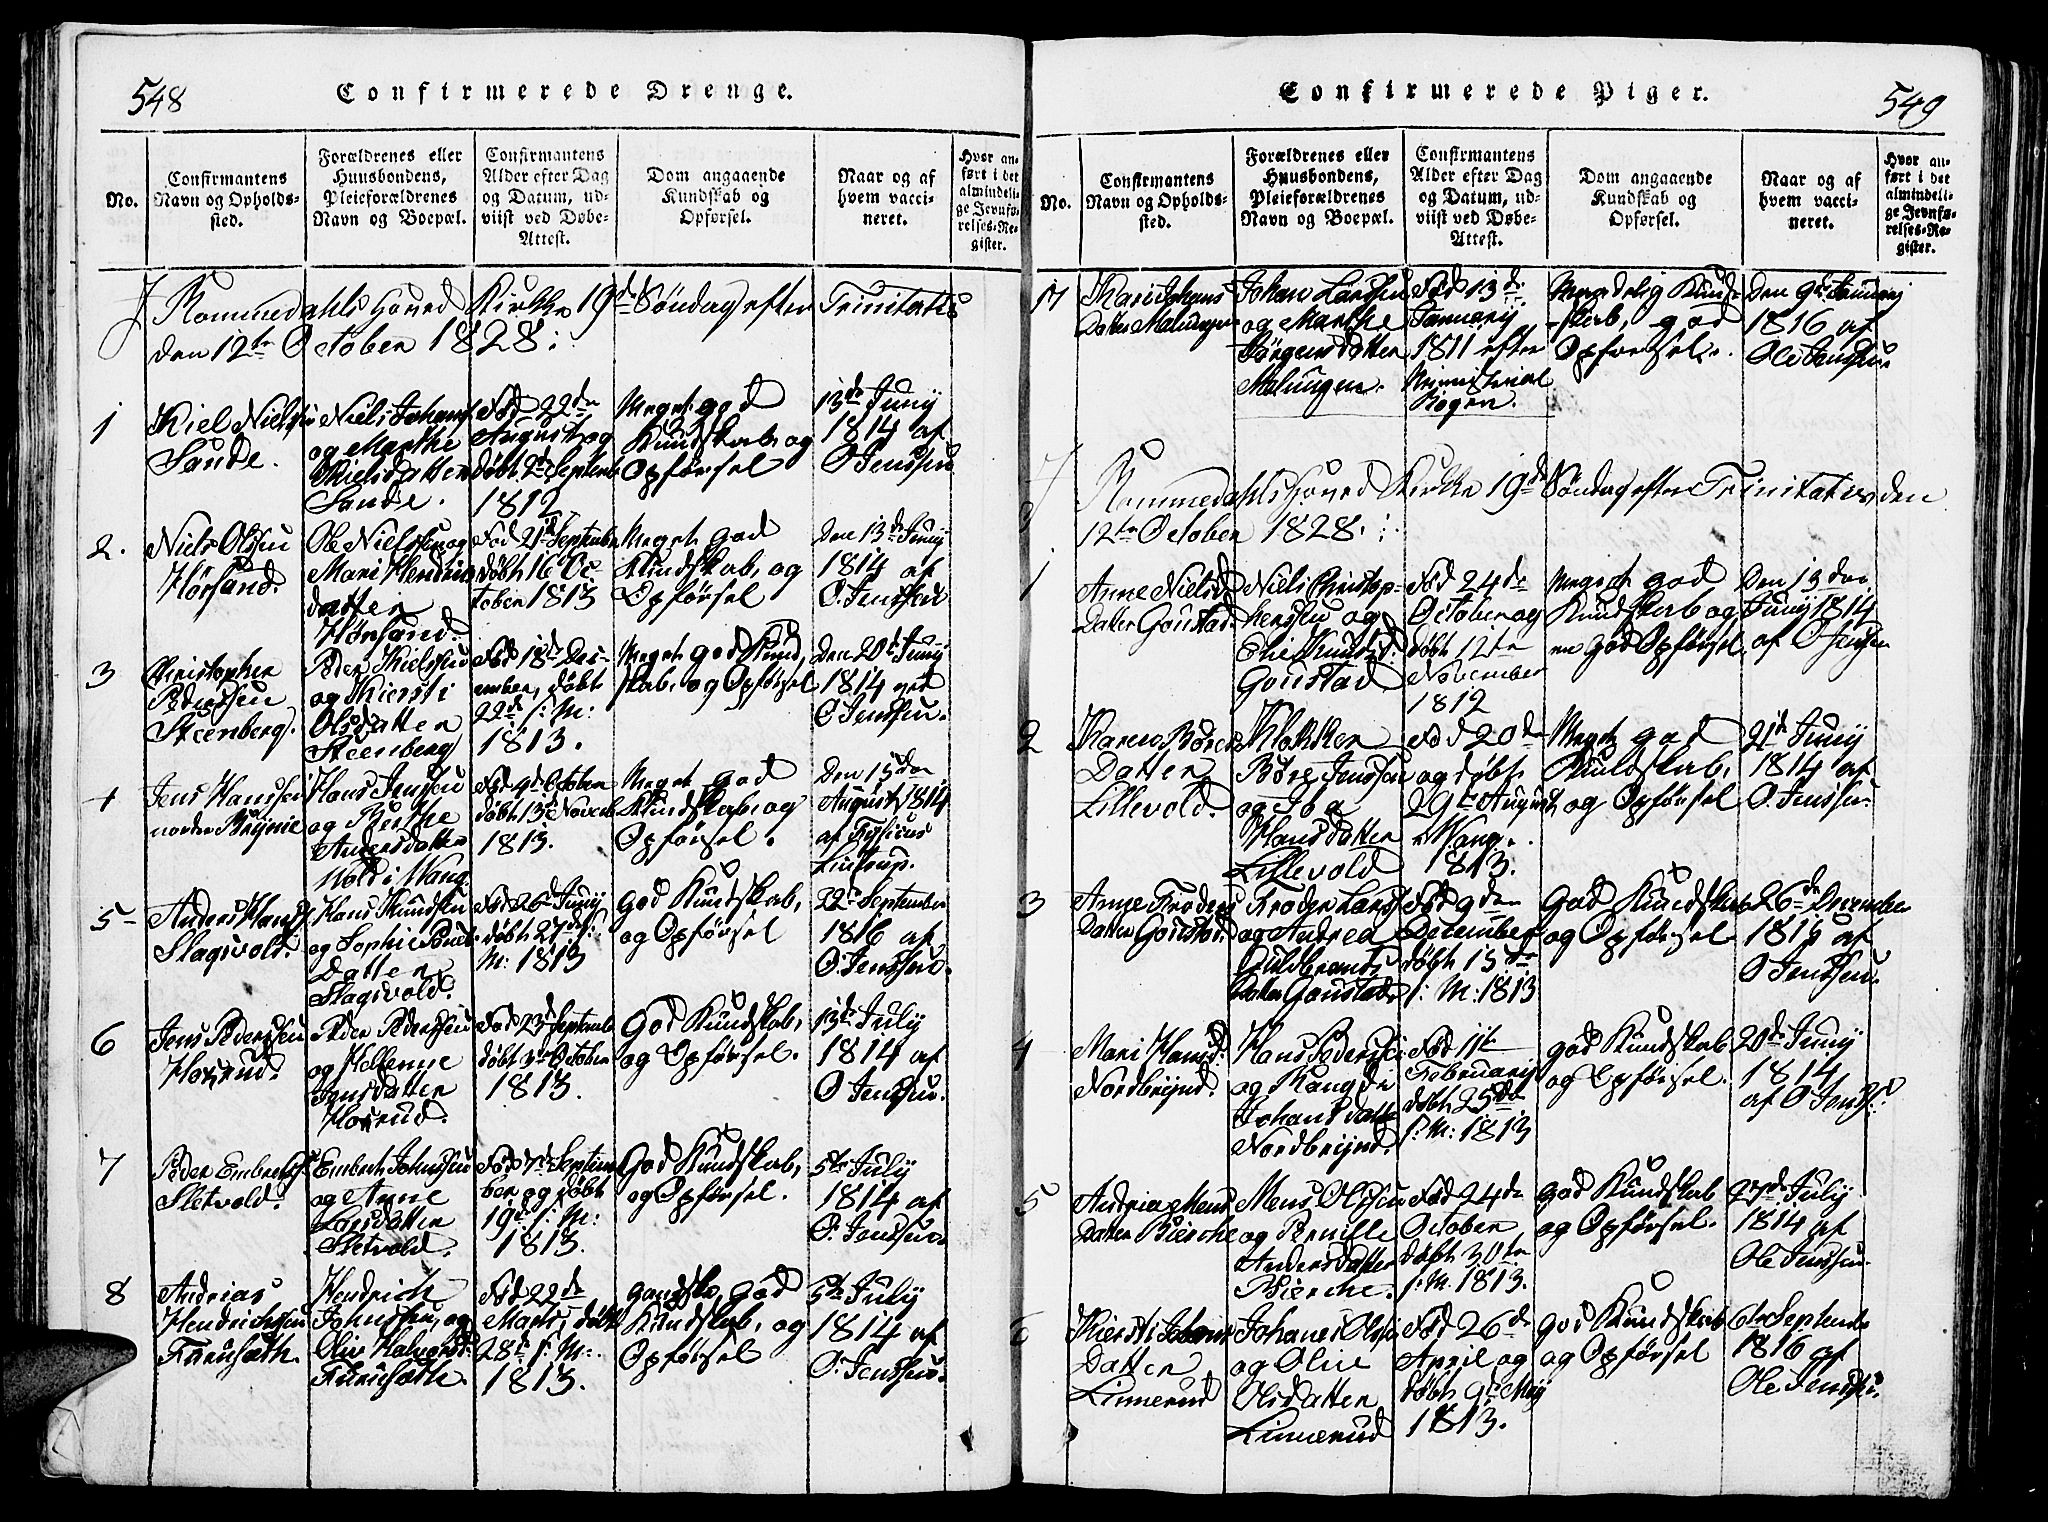 548
Confirmerede Drenge.
No.
Confirmantens
Navn og Opholds-
sted.
Forældrenes eller
Huusbondens,
Pleieforældrenes
Navn og Boepæl.
Confirmantens
Alder efter Dag
og Datum, ud-
viist ved Døbe-
Attest.
Dom angaaende
Kundskab og
Opførsel.
Naar og af
hvem vacci-
neret.
Hvor an-
ført i det
almindeli-
ge Jevnfø-
relses-Re-
gister.
I Rommedahls Hoved Kirke 19de Søndag efter Trinitatis
den 12te October 1828:
1
Kiel Nielsen
Sande.
Niels Johans
og Marthe
Kielsdatter
Sande.
Fød 22de
August og
døbt 2de Septemb
1812
Meget god
Kundskab og
Opførsel
13de Juny
1814 af
O Jenssen
2.
Niels Olssen
Hørsand.
Ole Nielssen og
Mari Hendrics
datter
Hørsand.
Fød 21de September
døbt 16 Oc
tober 1813
Meget god
Kundskab, og
Opførsel
Den 13de Juny
1814 af
O. Jenssen
3
Christopher
Pederssen
Steenberg.
Peder Kielssen
og Kiersti
Olsdatter
Steenberg
Fød 18de Dec-
ember, døbt
22de s: M:
1813.
Meget god Kund,
skab, og Opførsel
Den 20de Juny
1814 ved
O Jenssen.
4
Jens Hanssen
nordre Brynie
Hans Jenssen
og Berthe
Andersdatter
Wold i Wang
Fød 9de October
døbt 13de Novemb
1813.
Meget god
Kundskab og
Opførsel.
Den 15den
August 1814
af Fysicus
Lintrup.
5
Anders Hans
Slagsvold.
Hans Knudsen
og Sophie Poul
Datter
Slagsvold.
Fød 26de Juny
døbt 27de s:
M: 1813
God Kundskab,
og Opførsel
22de September
1816 af
O: Jenssen.
6
Jens Pederssen
Horrud.
Peder Pederssen
og Hellenne
Jensdatter
Horrud.
Fød 23de September
døbt 3die October
1813.
God Kundskab,
og Opførsel.
13de July
1814 af
O Jenssen.
7
Peder Embrethss
Sletvold.
Embreth Johnssen
og Anne
Larsdatter
Sletvold.
Fød 7de Septem
ber og døbt
19de s: M:
1813.
God Kundskab,
og Opførsel.
5te July
1814 af
O: Jenssen.
8
Andreas
Hendrichssen
Furusæth.
Hendrich
Johnssen, og
Olive Halvorsd:
Furusæth.
Fød 22de
Marts, døbt
28de s: M:
1813.
gandske god
Kundskab, og
Opførsel
5te July
1814 af
O: Jenssen.
549
Confirmerede Piger.
No.
Confirmantens
Navn og Opholds-
sted.
Forældrenes eller
Huusbondens,
Pleieforældrenes
Navn og Boepæl.
Confirmantens
Alder efter Dag
og Datum, ud-
viist ved Døbe-
Attest.
Dom angaaende
Kundskab og
Opførsel.
Naar og af
hvem vacci-
neret.
Hvor an-
ført i det
almindeli-
ge Jevnfø-
relses-Re-
gister.
17
Mari Johans
Datter Malungen
Johan Larssen
og Marthe
Jørgensdatter
Malungen.
Fød 13de
January
1811 efter
Ministerial
Bogen.
Maadelig Kund-
skab, god
Opførsel.
Den 9de January
1816 af
Ole Jenssen.
I Rommedahls Hoved Kirke 19de Søndag efter Trinitatis den
12te October 1828.:
1
Anne Niels
Datter Gonstad.
Niels Christop-
herssen og
Elie Knudsd:
Gonstad
Fød 24de
October og
døbt 12te
November
1812
Meget god
Kundskab og
en god Opførsel
Den 13den
Juny 1814
af O Jenssen
2
Karen Børres
Datter
Lillevold.
Klokker
Børre Jenssen
og
Hansdatter
Lillevold
Fød 20de
og døbt
29de August
i Wang.
1813.
Meget god
Kundskab,
og Opførsel
21de Juny
1814 af
O. Jenssen.
3
Anne Froders
Datter Gonstad.
Froder Lars
og Andrea
Guldbrands
Datter Gonstad
Fød 9den
December
døbt 15de
s: M: 1813
God Kundskab
og Opførsel
26de December
1815 af
O Jenssen.
4
Mari Hansd:
Nordbrynd.
Hans Pederssen
og Rangdi
Johansdatter
Nordbrynd.
Fød 11te
February
døbt 25de
s: M: 1813
god Kundskab
og Opførsel.
20de Juny
1814
af O Jenss:
5
Andrea Mons
Datter Bierche
Mons Olssen
og Pernille
Andersdatter
Bierche.
Fød 24de
October
døbt 30te
s: M. 1813.
god Kundskab
og Opførsel.
27de July
1814 af
Ole Jenssen.
6
Kiersti Johans
Datter
Linnerud
Johanes Olss
og Oline
Olsdatter
Linnerud
Fød 26de
April og
døbt 9de May
1813.
god Kundskab
og Opførsel
6te Septemb
1816 af
Ole Jenssen.